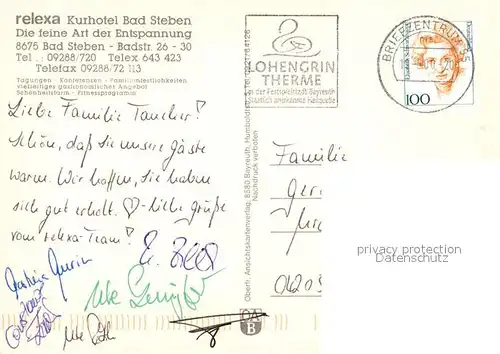 relexa Kurhotel Bad Steben
Die feine Art der Entspannung
8675 Bad Steben - Badstr. 26 - 30
Tel.: 09288/720 Telex 643 423
Telefax 09288/72 113
Tagungen - Konferenzen - Familienfestlichkeiten
vielseitiges gastronomisches Angebot
Schönheitsfarm - Fitnessprogramm
Liebe Familie Taucher!
Schön, daß Sie unsere Gäste
waren. Wir hoffen, Sie haben
sich gut erholt. ♡-liche Grüße
vom relexa-Team!
LOHENGRIN
THERME
in der Festspielstadt Bayreuth
Staatlich anerkannte Heilquelle
BRIEFZENTRUM 95
100
Oberfr. Ansichtskartenverlag, 8580 Bayreuth, Humboldtstr.
Nachdruck verboten
Familie
privacy protection
Datenschutz
OA
B